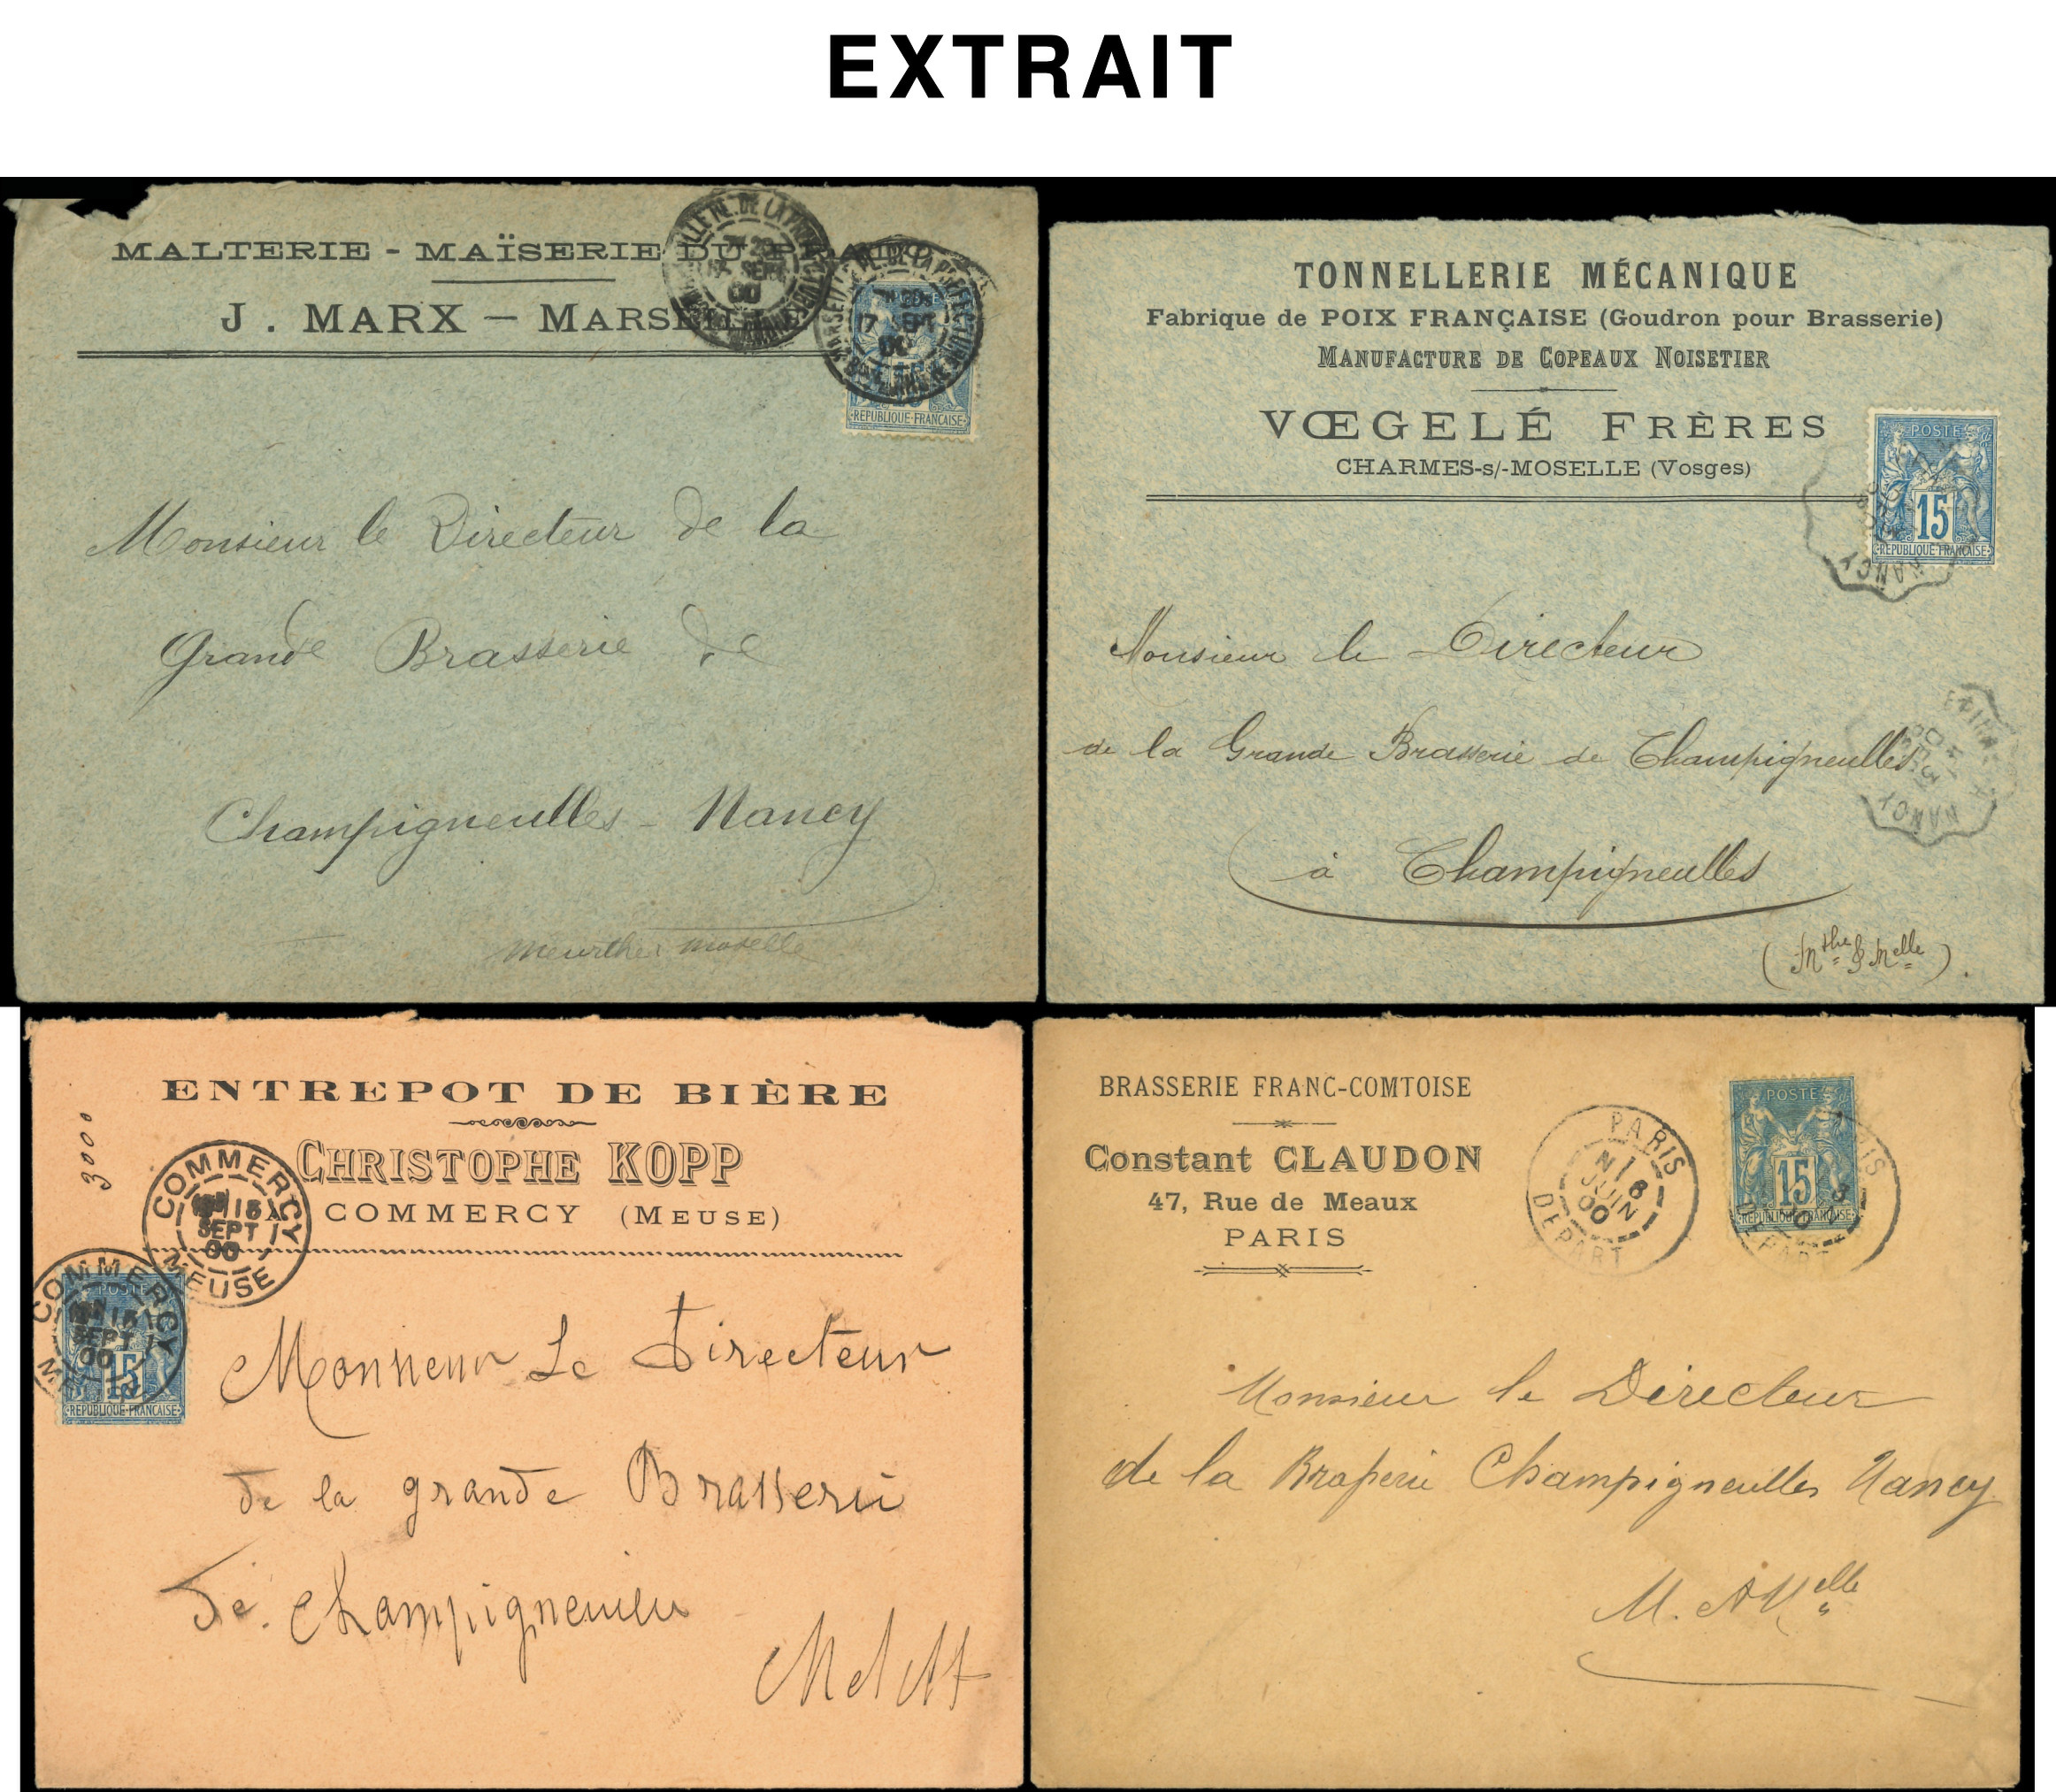 EXTRAIT
MALTERIE - MAÏSERIE DU PRADO
J. MARX — MARSEILLE
17 SEPT
00
POSTE
REPUBLIQUE FRANÇAISE
Monsieur le Directeur de la
Grande Brasserie de
Champigneulles - Nancy
Meurthe & Moselle
TONNELLERIE MÉCANIQUE
Fabrique de POIX FRANÇAISE (Goudron pour Brasserie)
MANUFACTURE DE COPEAUX NOISETIER
VŒGELÉ FRÈRES
CHARMES-s/-MOSELLE (Vosges)
POSTE
15
REPUBLIQUE FRANÇAISE
NANCY
Monsieur le Directeur
de la Grande Brasserie de Champigneulles
NANCY
à Champigneulles
(Mthe & Melle).
3000
ENTREPOT DE BIÈRE
CHRISTOPHE KOPP
A COMMERCY (MEUSE)
COMMERCY
SEPT
00
MEUSE
COMMERCY
SEPT
00
POSTE
15
REPUBLIQUE FRANÇAISE
Monsieur Le Directeur
de la grande Brasserie
de Champigneulles
M et M
BRASSERIE FRANC-COMTOISE
Constant CLAUDON
47, Rue de Meaux
PARIS
PARIS
8
JUIN
00
DEPART
POSTE
15
REPUBLIQUE FRANÇAISE
DEPART
Monsieur le Directeur
de la Brasserie Champigneulles Nancy
M. & Melle